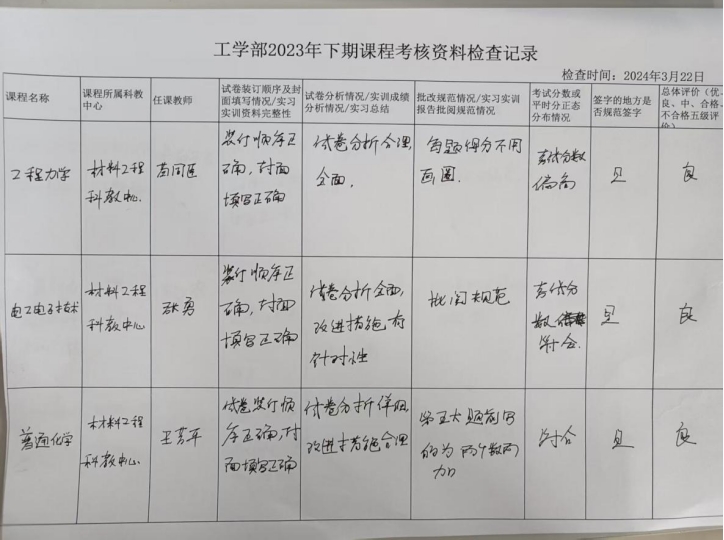 工学部2023年下期课程考核资料检查记录
检查时间：2024年3月22日
课程名称
课程所属科教
中心
任课教师
试卷装订顺序及封
面填写情况/实习
实训资料完整性
试卷分析情况/实训成绩
分析情况/实习总结
批改规范情况/实习实训
报告批阅规范情况
考试分数或
平时分正态
分布情况
签字的地方是
否规范签字
总体评价（优、
良、中、合格、
不合格五级评
价）
工程力学
材料工程
科教中心
装订顺序正
确，封面
填写正确
试卷分析合理，
全面．
每题得分不用
画圈．
考试分数
偏高
是
良
电工电子技术
材料工程
科教中心
张勇
装订顺序正
确，封面
填写正确
试卷分析全面，
改进措施有
针对性
批阅规范
考试分
数
符合．
是
良
普通化学
材料工程
科教中心．
王芳平
试卷装订顺
序正确，封
面填写正确
试卷分析详细，
改进措施合理
第五大题前写
的为两个数而
加
符合
是
良